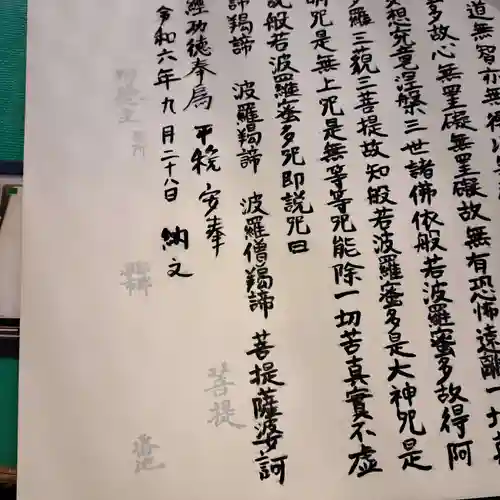 道無智亦無得以
多故心無罣礙無罣礙故無有恐怖遠離一切
想究竟涅槃三世諸佛依般若波羅蜜多故得阿
多羅三藐三菩提故知般若波羅蜜多是大神咒是
明咒是無上咒是無等等咒能除一切苦真實不虛
説般若波羅蜜多咒即説咒曰
諦羯諦 波羅羯諦 波羅僧羯諦 菩提薩婆訶
經功徳奉為 平穏 安奉
令和六年九月二十八日 納文
菩提